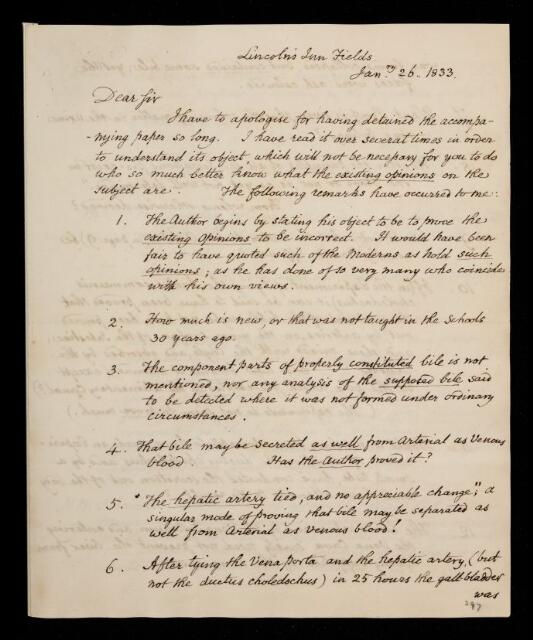 Lincoln's Inn Fields
Jan.ry 26. 1833.
Dear Sir
I have to apologise for having detained the accompa-
-nying paper so long. I have read it over several times in order
to understand its object, which will not be necessary for you to do
who so much better know what the existing opinions on the
subject are. The following remarks have occurred to me:
1. The Author begins by stating his object to be to prove the
existing opinions to be incorrect. It would have been
fair to have quoted such of the Moderns as hold such
opinions; as he has done of so very many who coincide
with his own views.
2. How much is new, or that was not taught in the Schools
30 years ago.
3. The component parts of properly constituted bile is not
mentioned, nor any analysis of the supposed bile said
to be detected where it was not formed under ordinary
circumstances.
4. That bile may be secreted as well from Arterial as Venous
blood. Has the Author proved it?
5. "The hepatic artery tied, and no appreciable change"; a
singular mode of proving that bile may be separated as
well from Arterial as Venous blood!
6. After tying the Vena porta and the hepatic artery, (but
not the ductus choledochus) in 25 hours the gall bladder
was
297